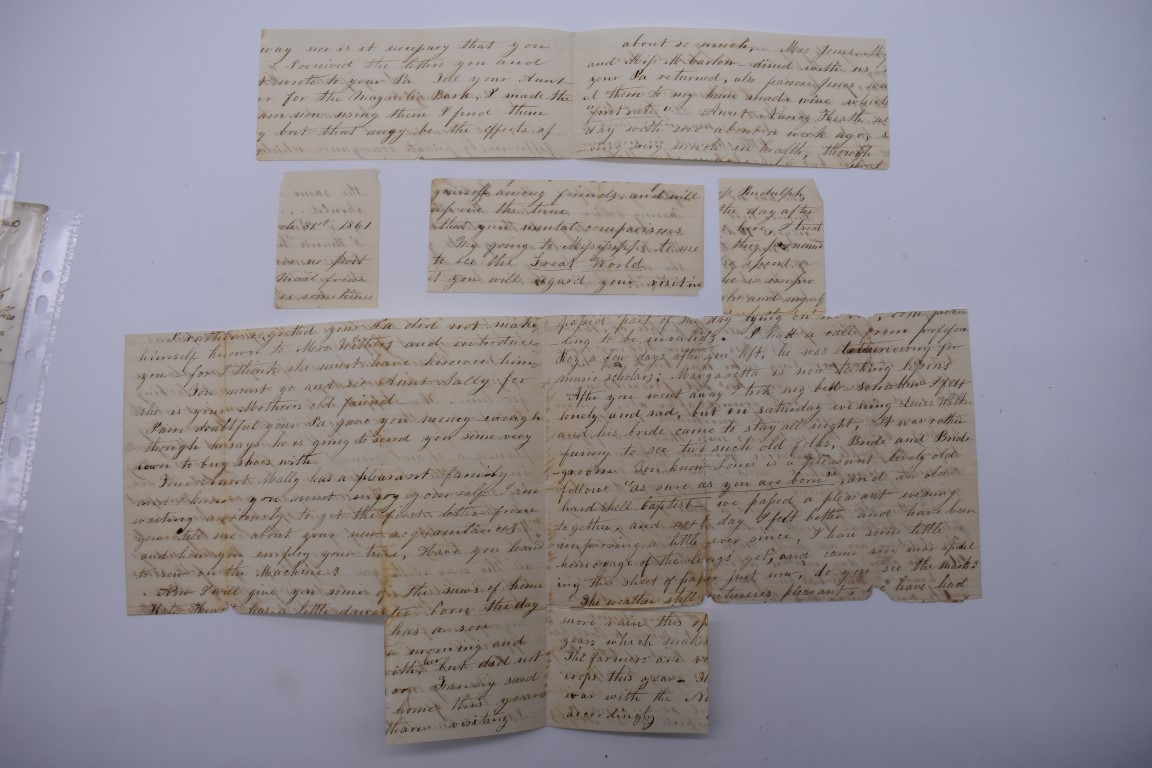 way nor is it necessary that you
I received the letters you and
wrote to your Pa. Tell your Aunt
for the Magnolia Bark, I made the
am now using them I find them
but that may be the effects of
about so much. Mrs Jones
and Miss McCarlow dined with us
your Pa returned, also
them to my home made wine which
"first rate". Aunt Nancy Heath
day with me about a week ago,
very much in health, though
the same
should
31st, 1861
are no post
mail from
is sometimes
yourself among friends, and will
improve the time
that your mental comparisons
My going to Mississippi to me
to see the Great World
you will regard your visit in
Rudolph
the day after
here, I tried
they
spent a
is impro
and might
I rather regretted your Pa did not make
himself known to Mrs Withers and introduce
you, for I think she must have known him
You must go and see Aunt Sally for
she is your Mother's old friend
I am doubtful your Pa gave you money enough
though he says he is going to send you some very
soon to buy shoes with
Your Aunt Mally has a pleasant family
and I know you must enjoy yourself. I am
waiting anxiously to get the first letter from
you. Tell me about your new acquaintances,
and how you employ your time, Have you learned
to sew on the Machine?
Now I will give you some of the news of home
Kate Thews has a little daughter born the day
part of the day lying on
ding to be invalids. I had a call from professor
Roz a few days after you left, he was electioneering for
music scholars; Margaretta is now taking lessons
After you went away I took my bed somehow I felt
lonely and sad, but on saturday evening Louis
and his bride came to stay all night. It was rather
funny to see two such old folks, Bride and Bride
groom. You know Louis is a pleasant lively old
fellow "as sure as you are born", and an old
hard shell baptist – we passed a pleasant evening
together, and next day I felt better and have been
improving a little ever since, I have some little
hemorrage of the lungs yet, and came very near spoil
ing this sheet of paper just now, do you see the marks?
The weather still continues pleasant have had
has a son
morning and
with but did not
Fanny said
home this year
than visiting
more rain this sp
years which make
The farmers are
crops this year –
war with the No
accordingly